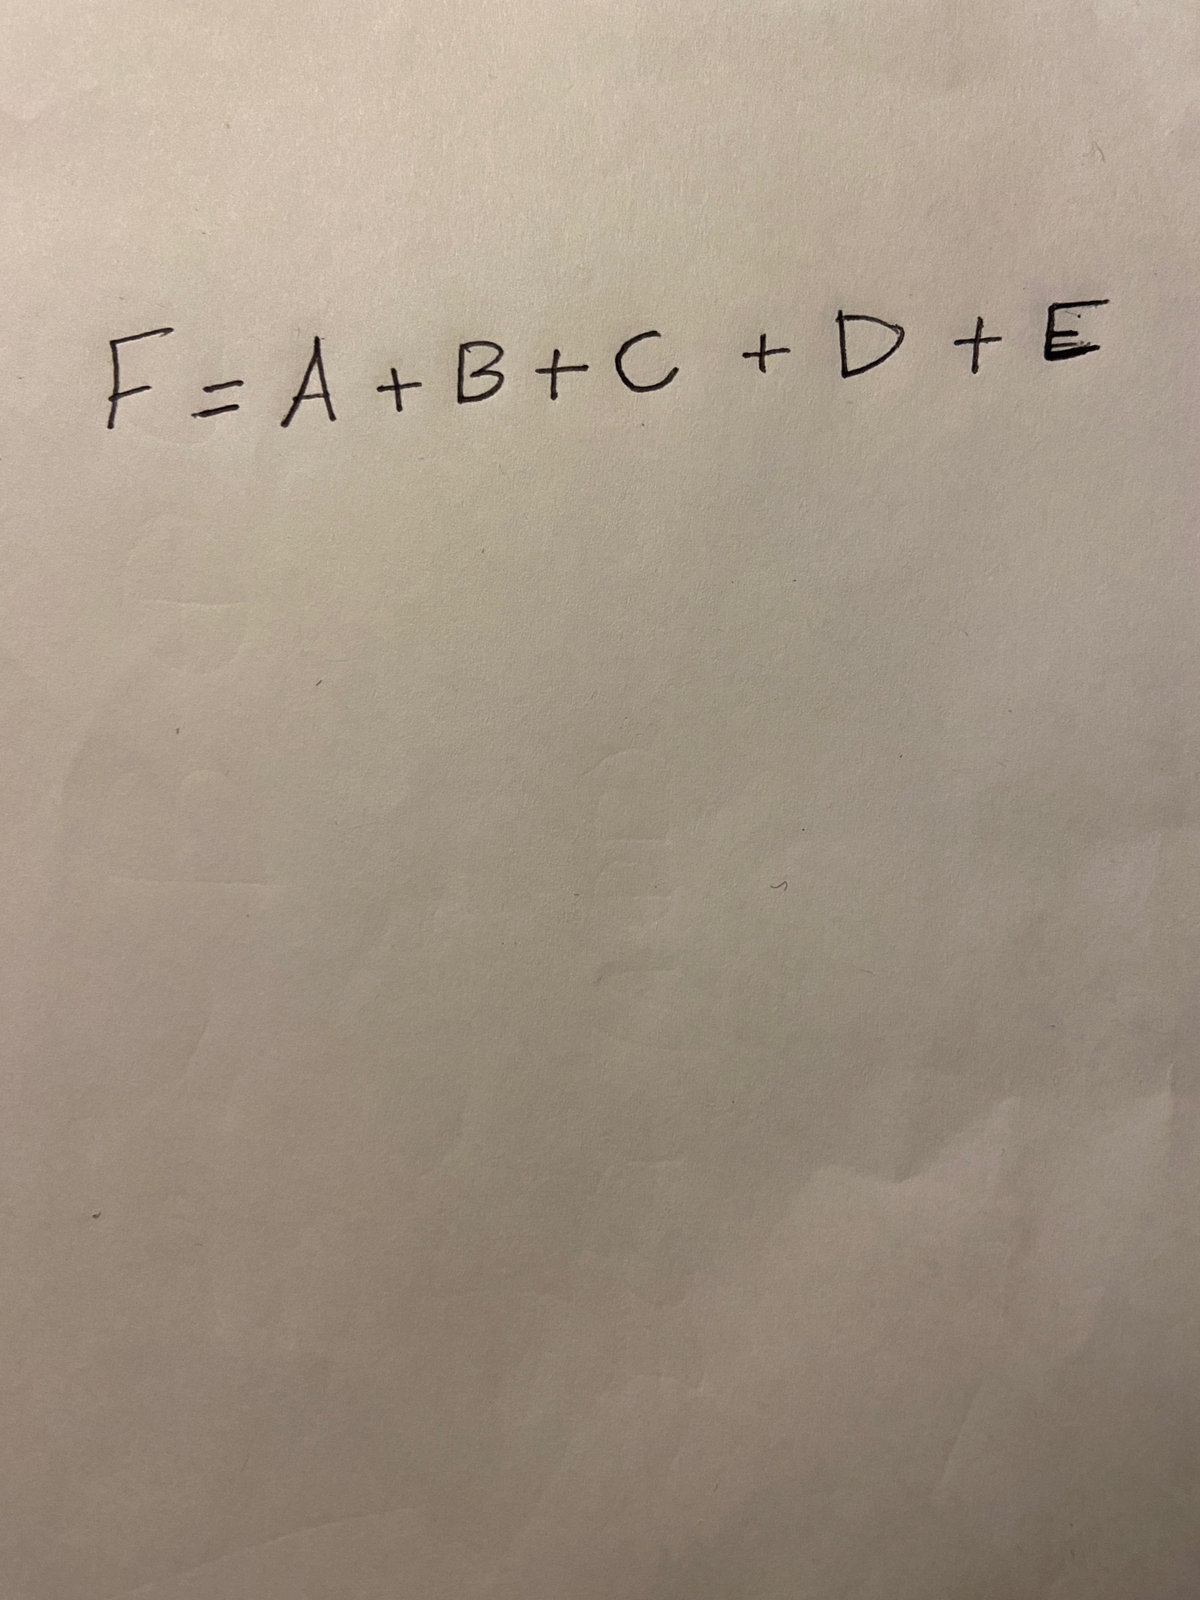 F = A + B + C + D + E